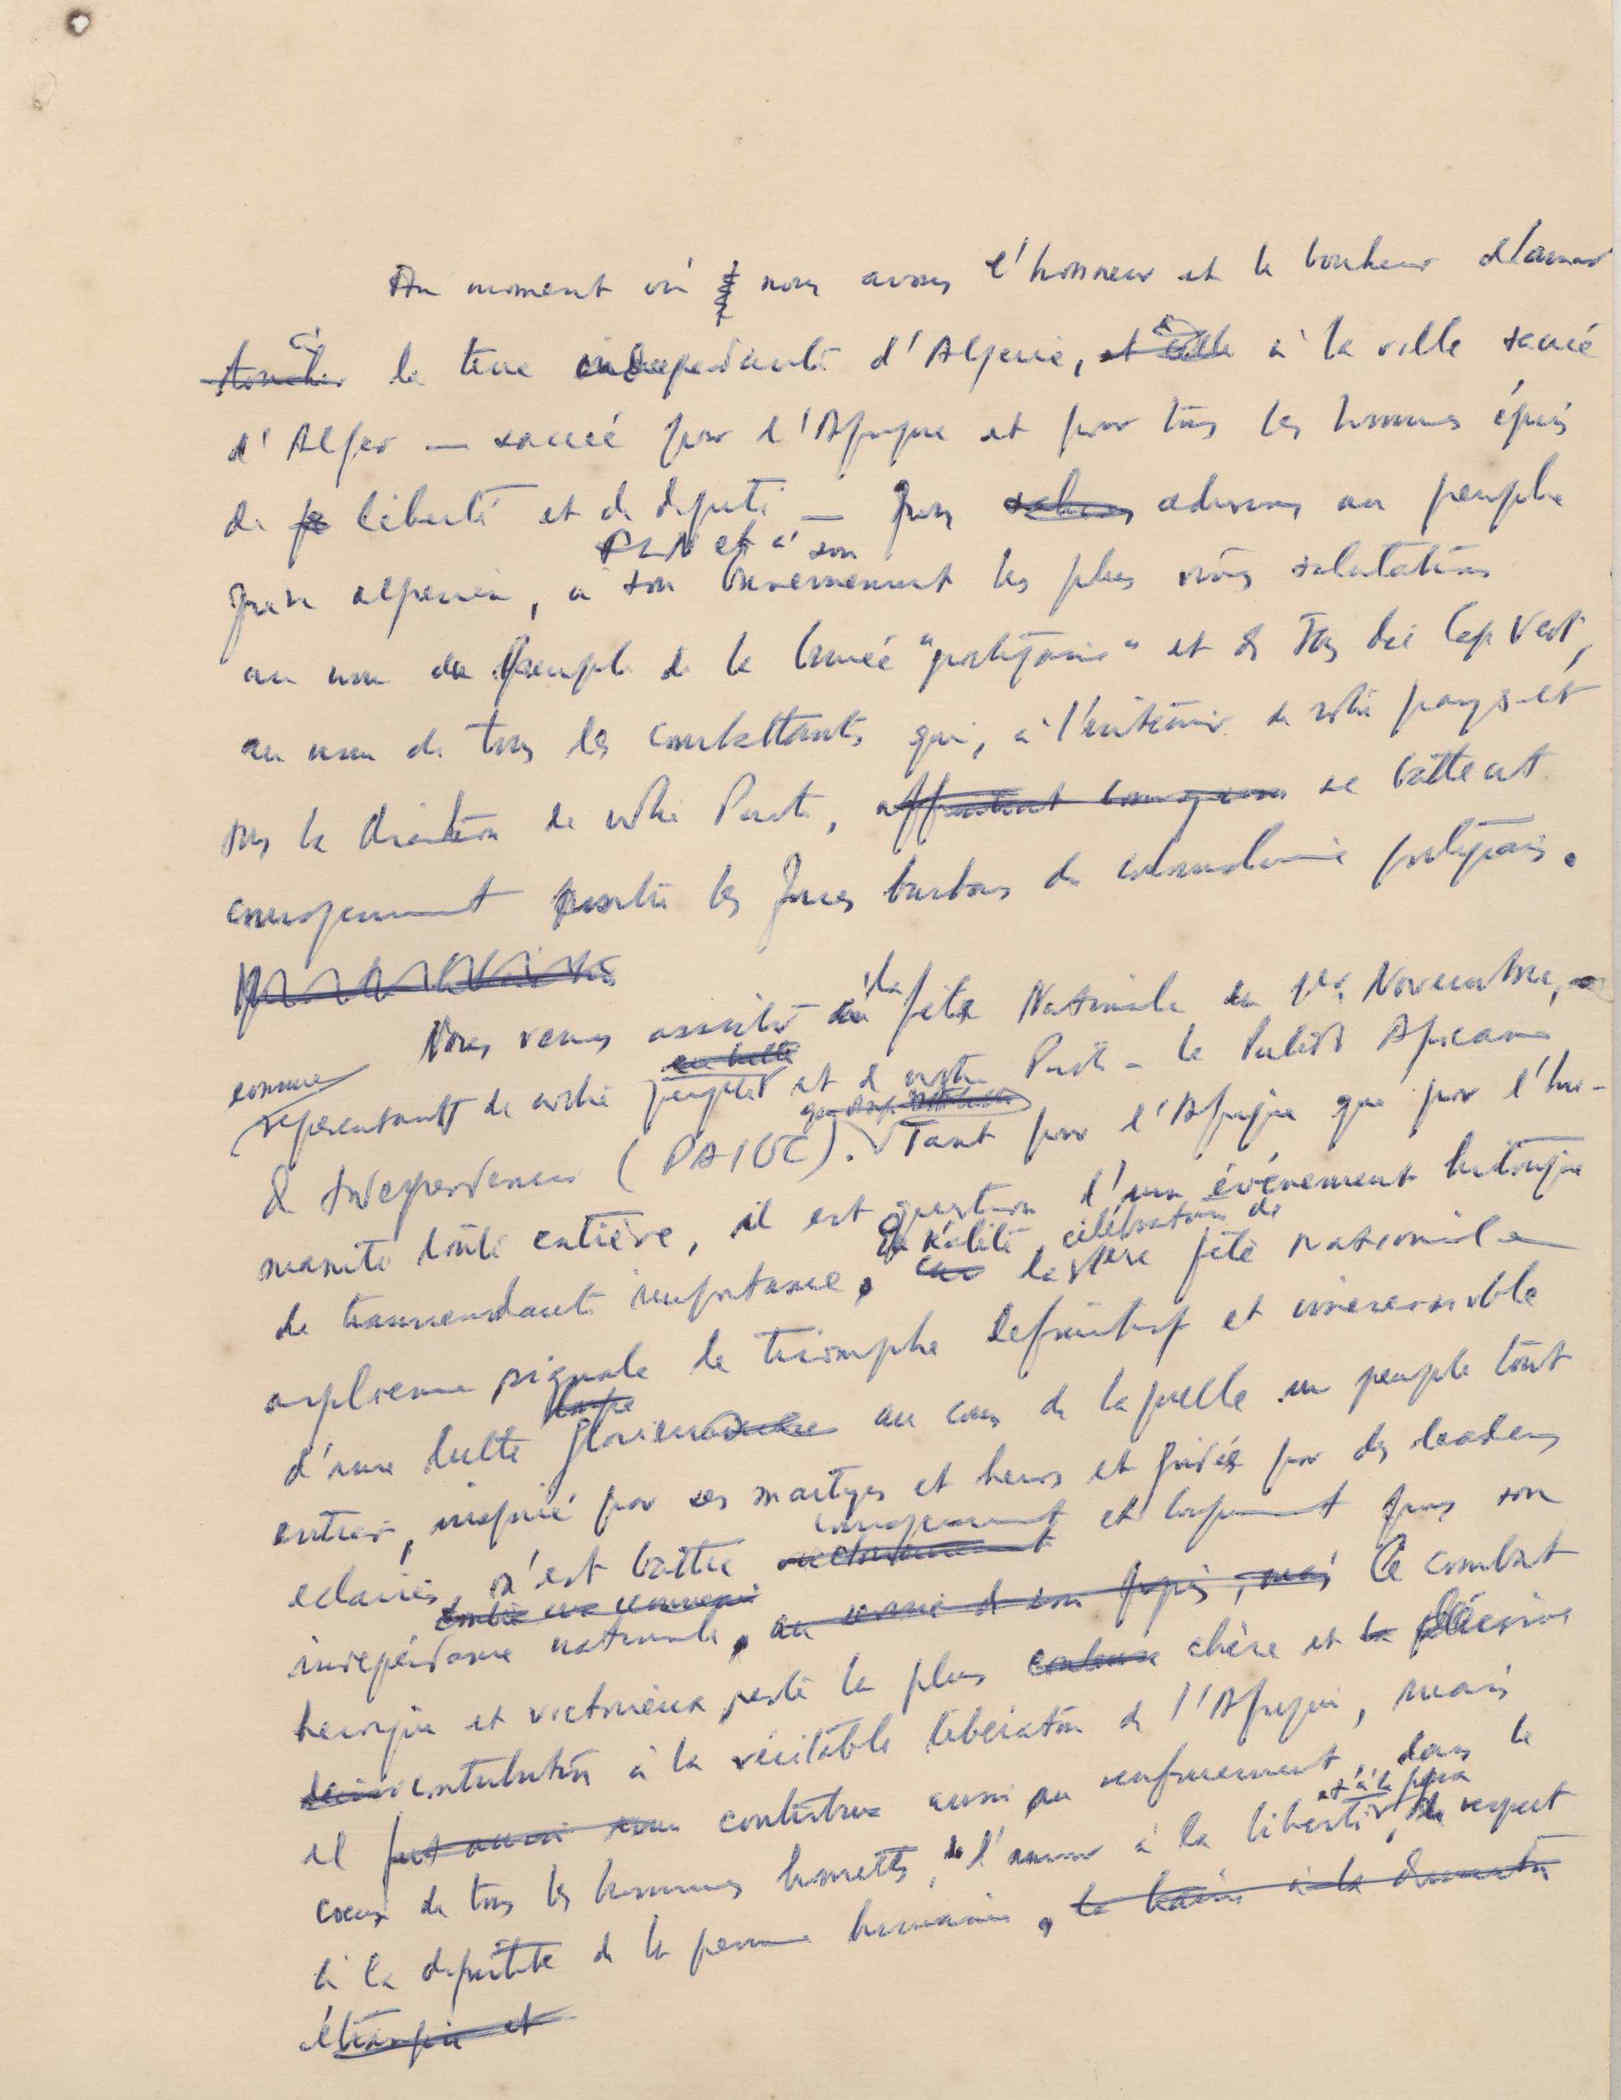 Au moment où nous avons l'honneur et le bonheur d'arriver
toucher la terre independante d'Algerie, et celle à la ville sacrée
d'Alger — sacrée pour l'Afrique et pour tous les hommes épris
de liberté et de dignité — nous adressons au peuple
FLN et à son
frere algerien, à son Gouvernement les plus vives salutations
au nom du Peuple de la Guinée "portugaise" et des Iles du Cap Vert,
au nom de tous les combattants qui, à l'intérieur de notre pays et
sous la direction de notre Parti, affrontent courageusement se battent
courageusement contre les forces barbares du colonialisme portugais.
Nous venons assister à la fête Nationale du 1er Novembre,
comme
en lutte
representants de notre peuple et de notre Parti - le Parti Africain
d'Independance (PAIGC). Tant pour l'Afrique que pour l'hu-
manité toute entière, il est question d'un événement historique
En réalité, célébration de
de transcendante importance, car la 1ère fête nationale
algérienne signale le triomphe definitif et irreversible
longue
d'une lutte glorieuse au cours de laquelle un peuple tout
entier, inspiré par ses martyrs et heros et guidé par des leaders
courageusement
eclairés, s'est battu victorieusement et longuement pour son
independance nationale, au service de son pays, mais Ce combat
heroique et victorieux porte la plus chère et la décisive
contribution à la véritable libération de l'Afrique, mais
il fut aussi une contribue aussi au renforcement, dans le
et à la paix
coeur de tous les hommes honnetts, de l'amour à la liberté, du respect
à la dignité de la personne humaine, la haine à la domination
étrangère et